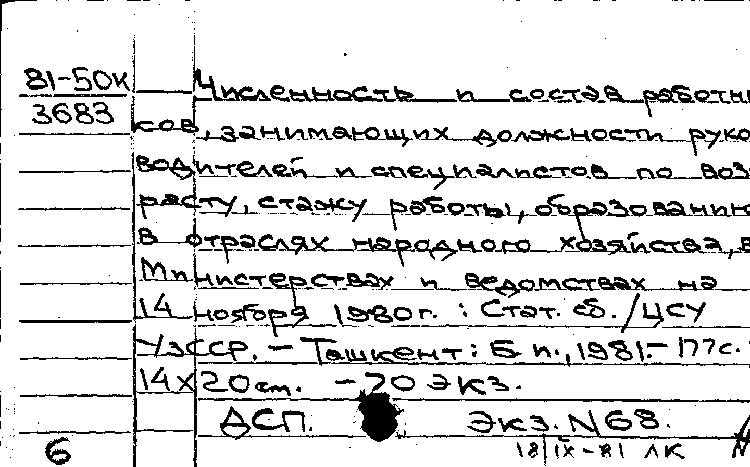 81-50к Численность и состав работни
3683
ков, занимающих должности руко
водителей и специалистов по воз
расту, стажу работы, образованию
в отраслях народного хозяйства, в
Министерствах и ведомствах на
14 ноября 1980г. : Стат. сб. / ЦСУ
УзССР. – Ташкент: Б. и., 1981. – 177с.
14х20 см. – 70 экз.
ДСП. Экз. N 68.
6 18|IX-81 ЛК